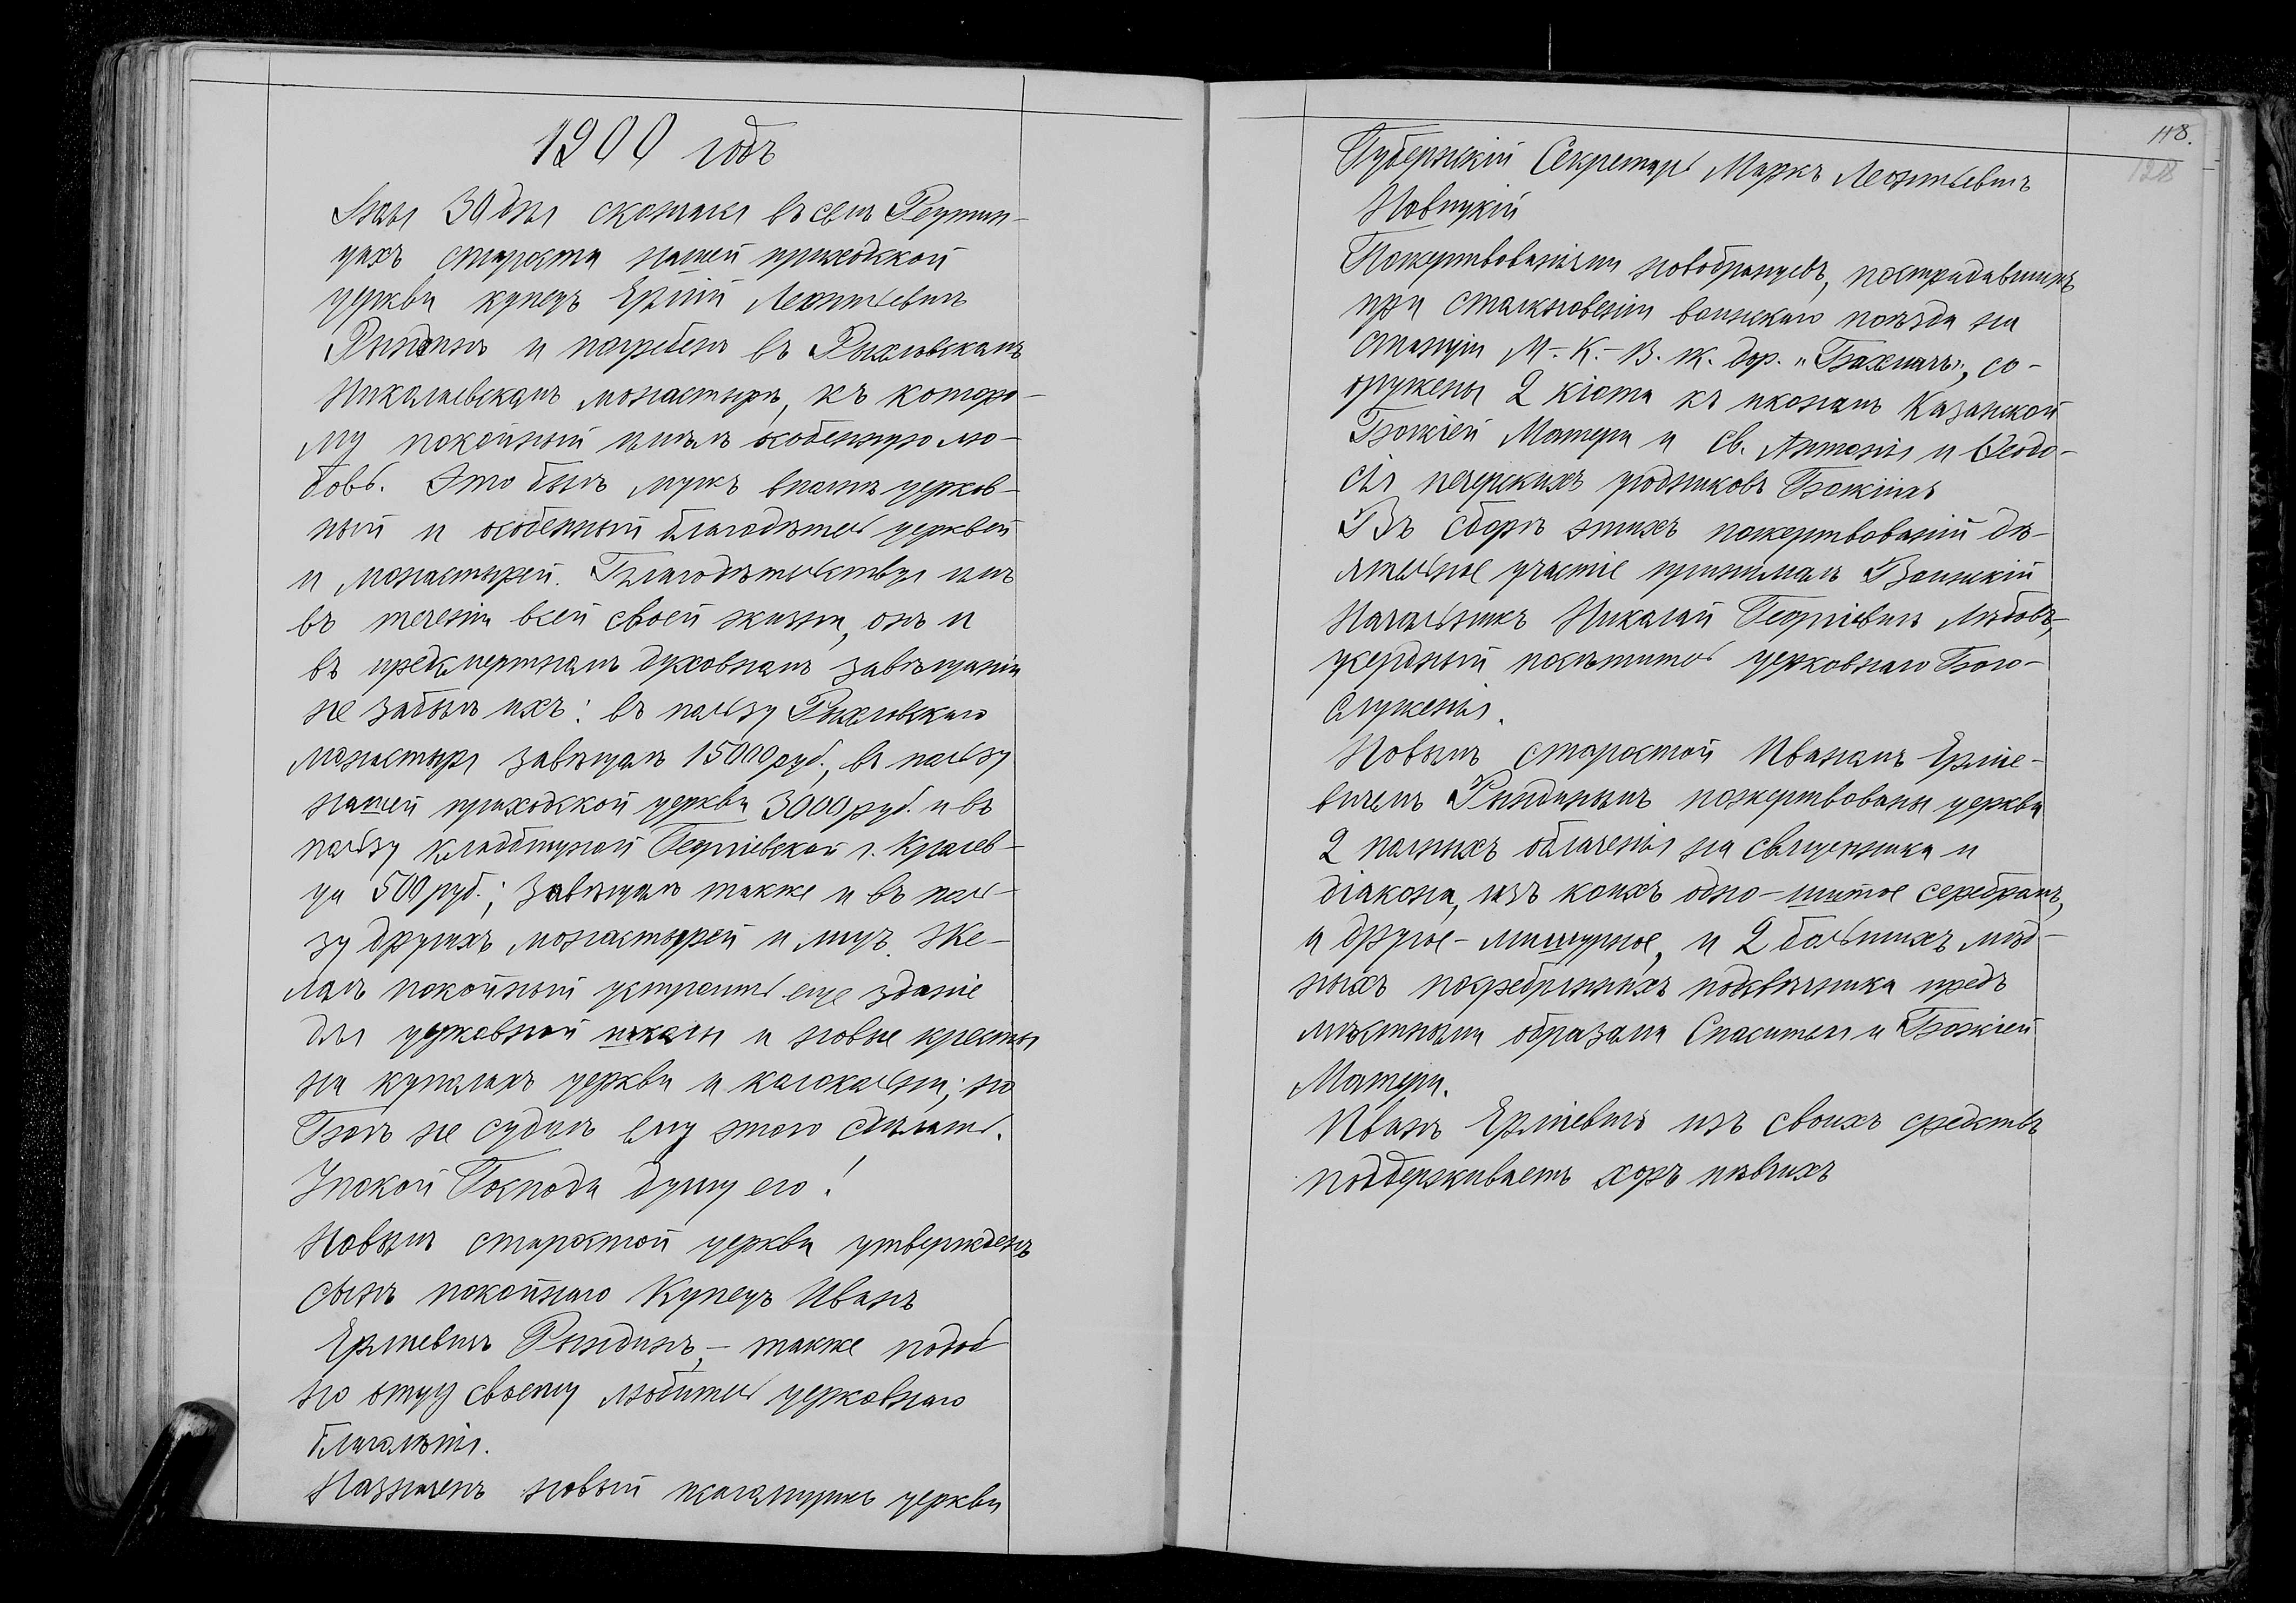 1900 годъ
Іюля 30 дня скончался въ селѣ Реутин-
цахъ староста нашей приходской
церкви купецъ Ермій Леонтьевичъ
Рындинъ и погребенъ въ Рыхловскомъ
Николаевскомъ монастырѣ, къ которо-
му покойный питалъ особенную лю-
бовь. Это былъ мужъ вполнѣ церков-
ный и особенный благодѣтель церквей
и монастырей. Благодѣтельствуя имъ
въ теченіи всей своей жизни, онъ и
въ предсмертномъ духовномъ завѣщаніи
не забылъ ихъ: въ пользу Рыхловскаго
монастыря завѣщалъ 15000 руб., въ пользу
нашей приходской церкви 3000 руб. и въ
пользу кладбищной Георгіевской г. Кролев-
ца 500 руб.; завѣщалъ также и въ поль-
зу другихъ монастырей и лицъ. Же-
лалъ покойный устроить еще зданіе
для церковной школы и новые кресты
на куполахъ церкви и колокольни; но
Богъ не судилъ ему этого сдѣлать.
Упокой Господи душу его!
Новымъ старостой церкви утвержденъ
сынъ покойнаго Купецъ Иванъ
Ерміевичъ Рындинъ, - также подоб
но отцу своему любитель церковнаго
благолѣпія.
Назначенъ новый псаломщикъ церкви
118.
128
Губернскій Секретарь Маркъ Леонтьевичъ
Новицкій
Пожертвованіями новобранцевъ, пострадавшихъ
при столкновеніи воинскаго поѣзда на
станціи М.-К.-В. ж. дор. „Бахмачъ", со-
оружены 2 кіота къ иконамъ Казанской
Божіей Матери и св. Антонія и Ѳеодо-
сія печерскихъ угодниковъ Божіихъ
Въ сборѣ этихъ пожертвованій дѣ-
ятельное участіе принималъ Воинскій
Начальникъ Николай Георгіевичъ Лѣбовъ,
усердный посѣтитель церковнаго Бого-
служенія.
Новымъ старостой Иваномъ Ерміе-
вичемъ Рындинымъ пожертвованы церкви
2 полныхъ облаченія на священника и
діакона, изъ коихъ одно - шитое серебромъ,
а другое - мишурное, и 2 большихъ мѣд-
ныхъ посребрянныхъ подсвѣчника предъ
мѣстными образами Спасителя и Божіей
Матери.
Иванъ Ерміевичъ изъ своихъ средствъ
поддерживаетъ хоръ пѣвчихъ